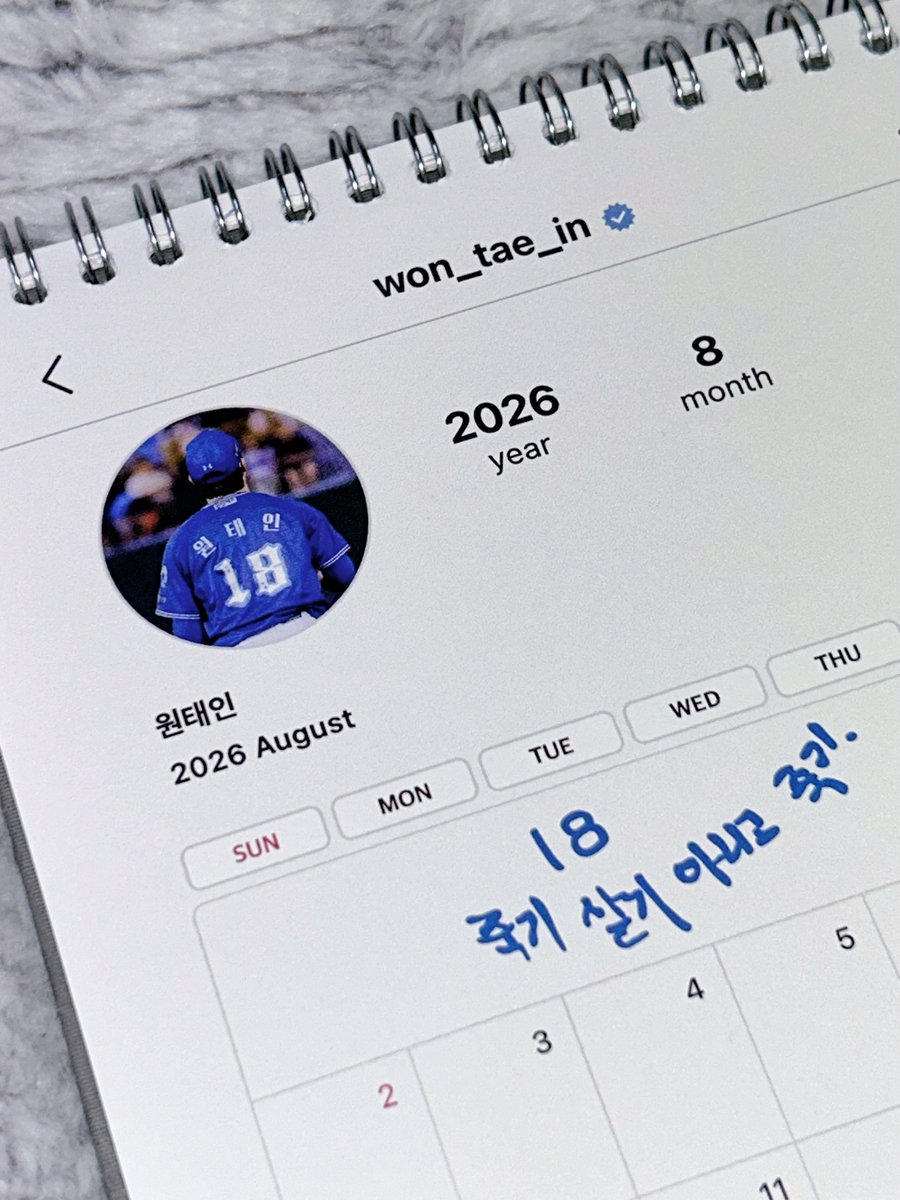 won_tae_in
2026
year
8
month
원태인
18
원태인
2026 August
SUN MON TUE WED THU
18
죽기 살기 아니고 죽기.
2 3 4 5
11